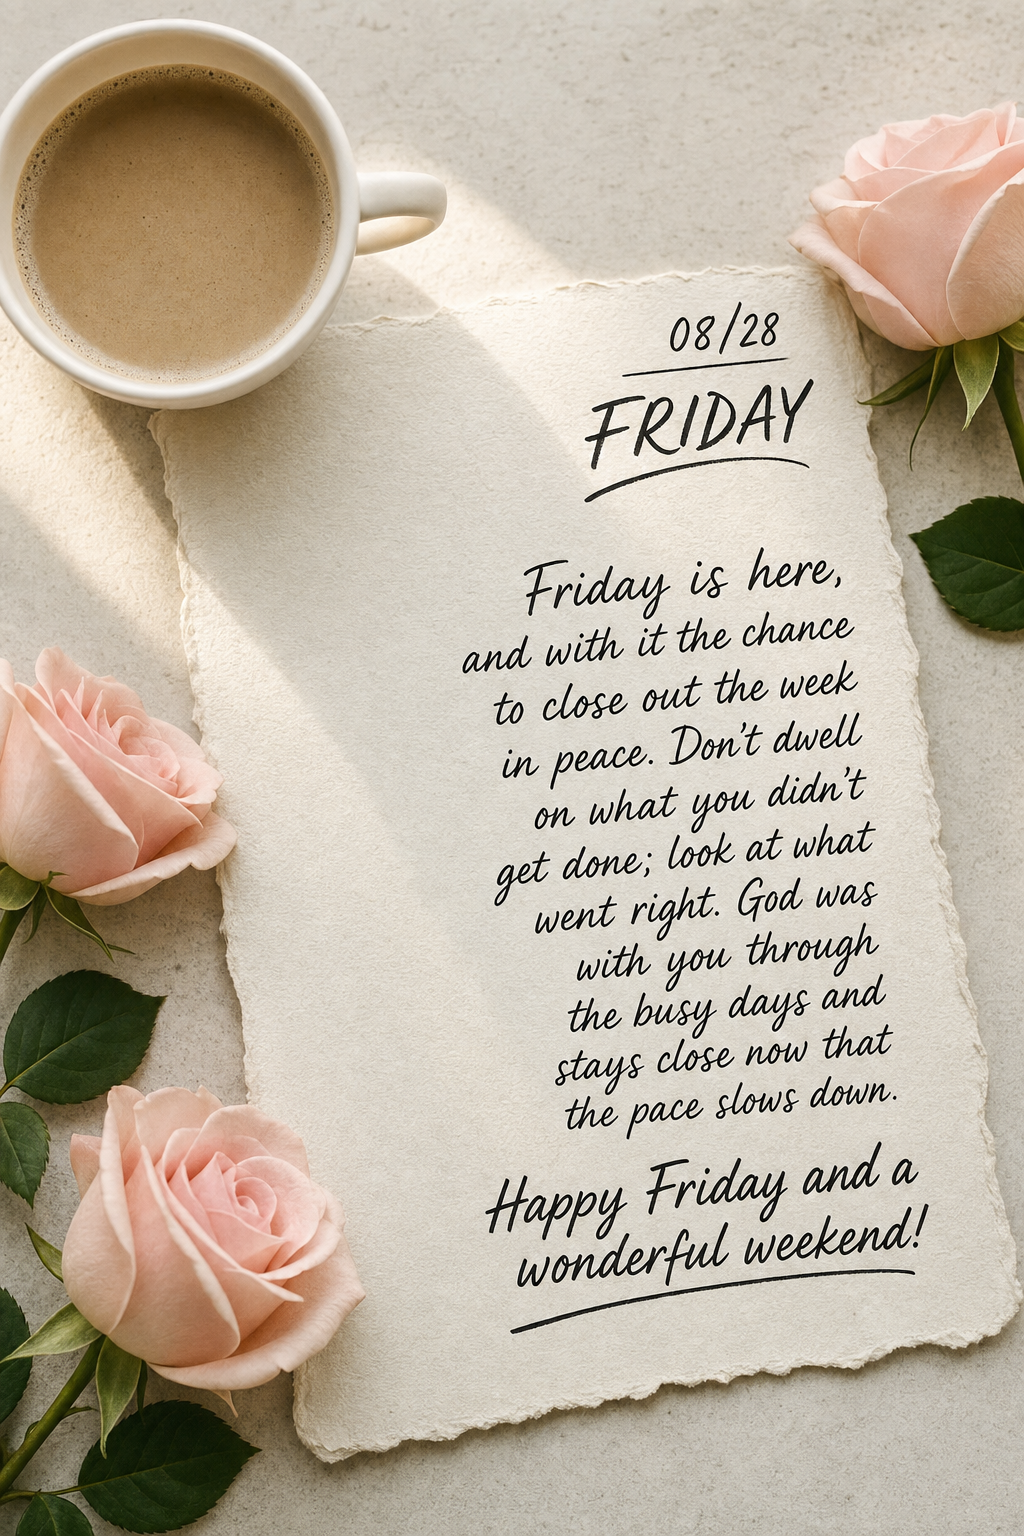 08/28
FRIDAY
Friday is here,
and with it the chance
to close out the week
in peace. Don't dwell
on what you didn't
get done; look at what
went right. God was
with you through
the busy days and
stays close now that
the pace slows down.
Happy Friday and a
wonderful weekend!